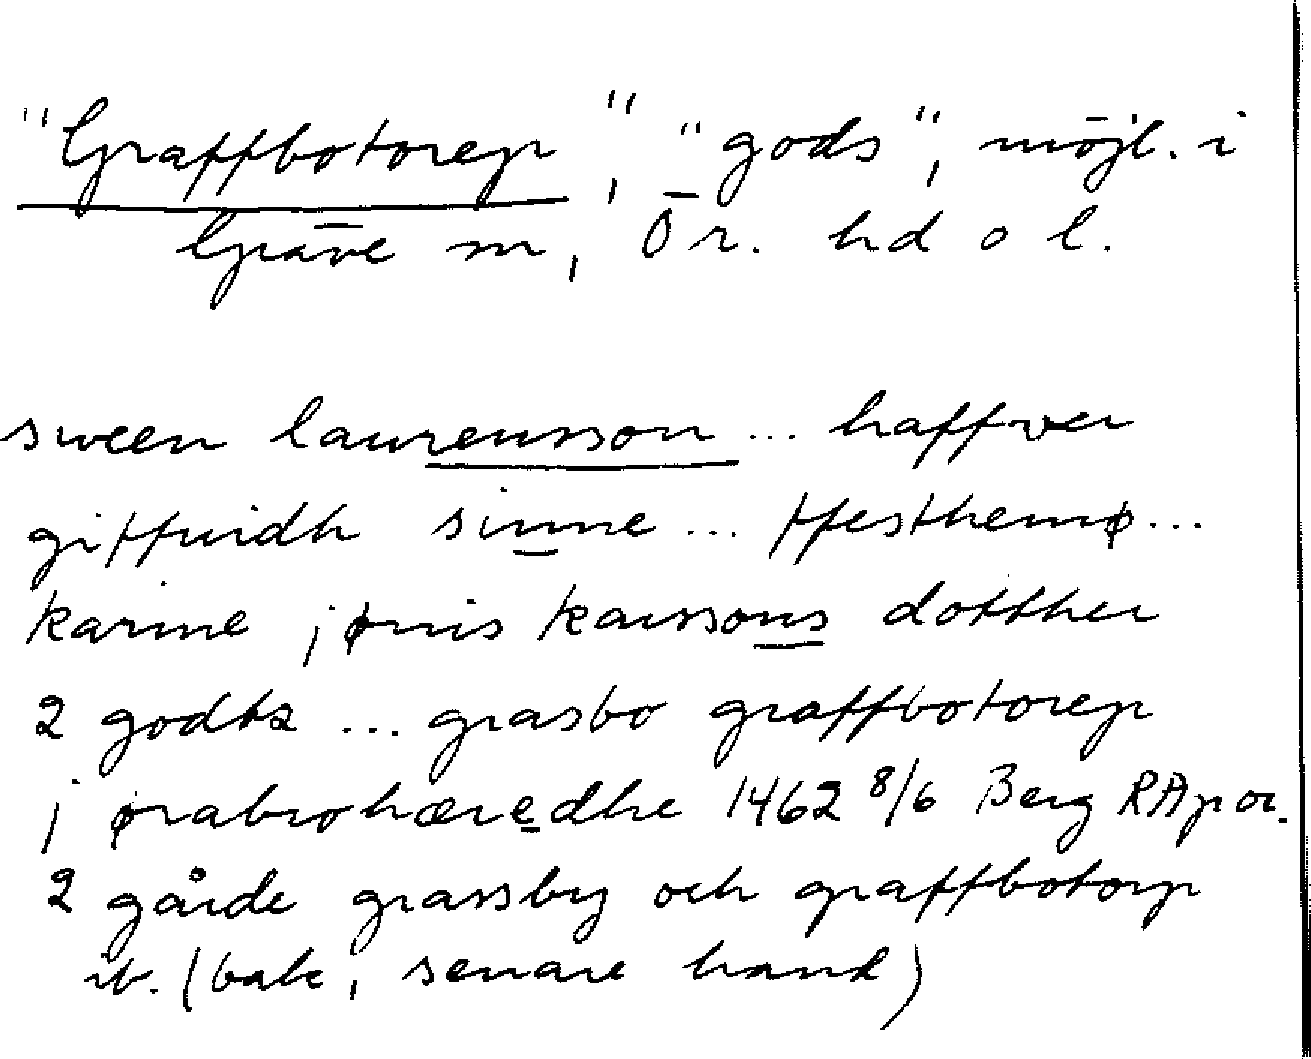 "Graffbotorep", "gods", möjl. i
Gräve sn, Ör. hd o l.
sween laurensson ... haffver
giffuidh sinne ... ffesthemø ...
karine jønis karssons dotther
2 godhz ... grasbo graffbotorep
j ørabrohæredhe 1462 8/6 Berg RAp or.
2 gårde grassby och graffbotorp
ib. (bak, senare hand)